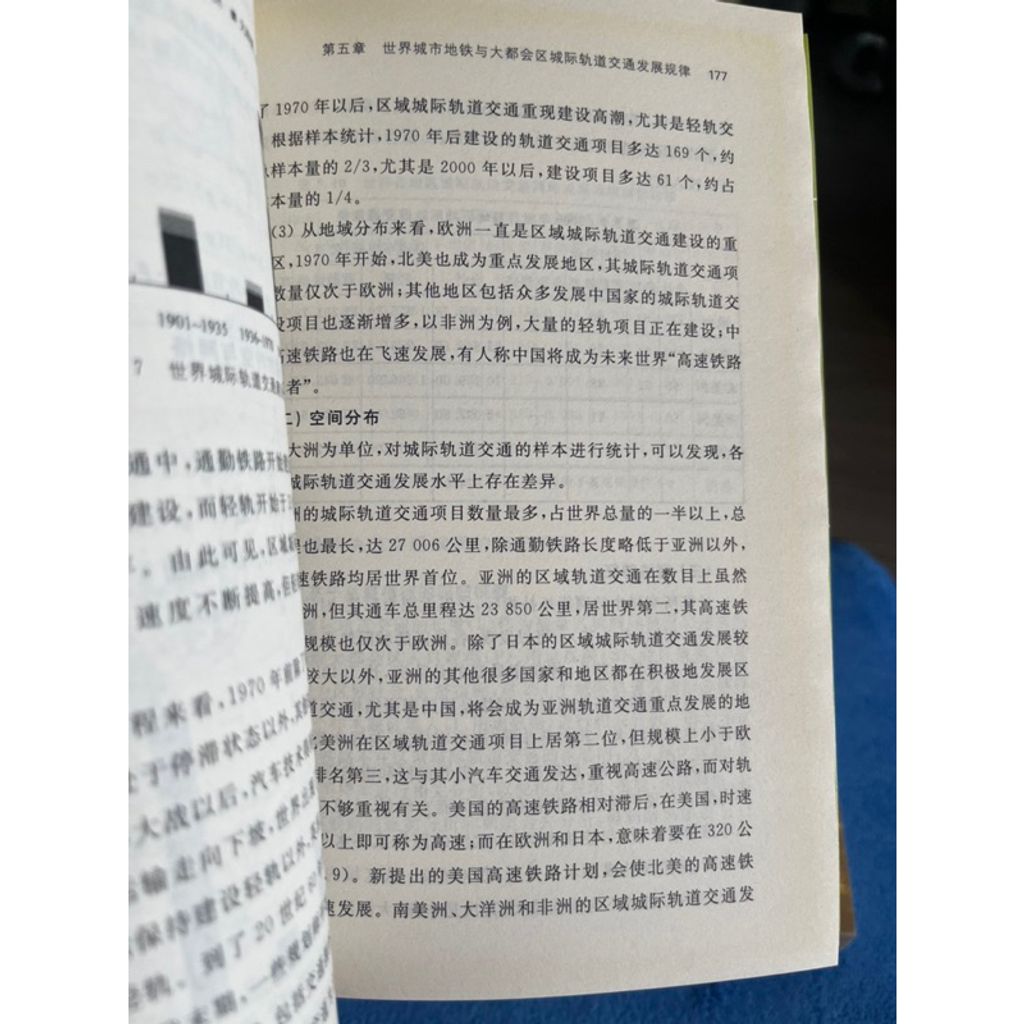 1901~1935 1936~1970
7 世界城际轨道交通
通中，通勤铁路开始
建设，而轻轨开始于
。由此可见，区域
速度不断提高，但
程来看，1970年前
处于停滞状态以外，其
大战以后，汽车技术
运输走向下坡，世界
保持建设轻轨以外，
轨。到了20世纪
末期，一些规划
包括交通
第五章 世界城市地铁与大都会区城际轨道交通发展规律 177
了1970年以后，区域城际轨道交通重现建设高潮，尤其是轻轨交
根据样本统计，1970年后建设的轨道交通项目多达169个，约
样本量的2/3，尤其是2000年以后，建设项目多达61个，约占
本量的1/4。
(3) 从地域分布来看，欧洲一直是区域城际轨道交通建设的重
区，1970年开始，北美也成为重点发展地区，其城际轨道交通项
数量仅次于欧洲；其他地区包括众多发展中国家的城际轨道交
设项目也逐渐增多，以非洲为例，大量的轻轨项目正在建设；中
高速铁路也在飞速发展，有人称中国将成为未来世界“高速铁路
者”。
二) 空间分布
大洲为单位，对城际轨道交通的样本进行统计，可以发现，各
城际轨道交通发展水平上存在差异。
洲的城际轨道交通项目数量最多，占世界总量的一半以上，总
程也最长，达27 006公里，除通勤铁路长度略低于亚洲以外，
速铁路均居世界首位。亚洲的区域轨道交通在数目上虽然
洲，但其通车总里程达23 850公里，居世界第二，其高速铁
规模也仅次于欧洲。除了日本的区域城际轨道交通发展较
较大以外，亚洲的其他很多国家和地区都在积极地发展区
道交通，尤其是中国，将会成为亚洲轨道交通重点发展的地
北美洲在区域轨道交通项目上居第二位，但规模上小于欧
排名第三，这与其小汽车交通发达，重视高速公路，而对轨
不够重视有关。美国的高速铁路相对滞后，在美国，时速
以上即可称为高速；而在欧洲和日本，意味着要在320公
9)。新提出的美国高速铁路计划，会使北美的高速铁
速发展。南美洲、大洋洲和非洲的区域城际轨道交通发